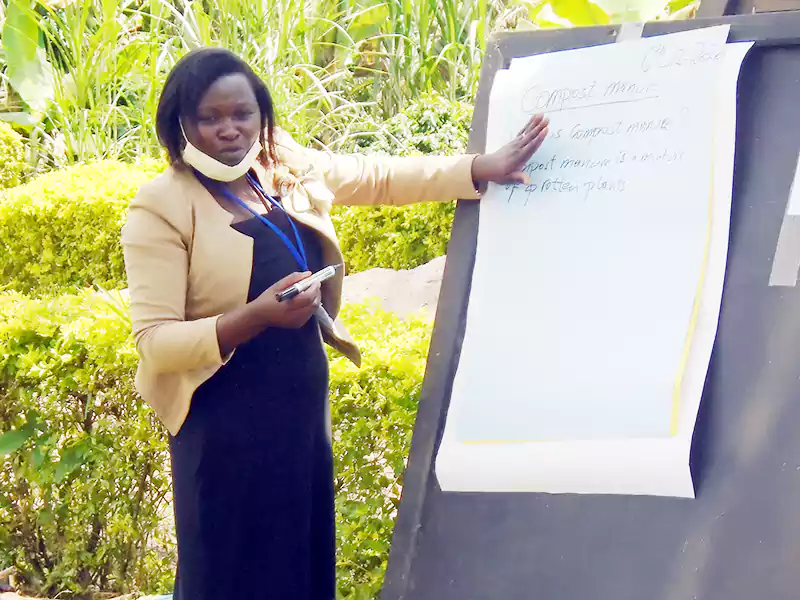 Compost manure
is Compost manure?
Compost manure is a mixture
of rotten plants